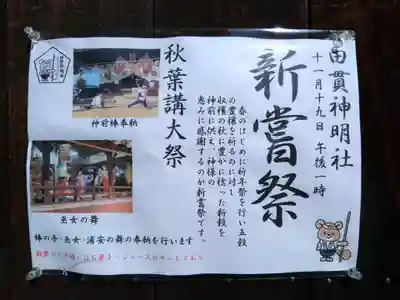 由貫神明社
十一月十九日 午後一時
新嘗祭
春のはじめに祈年祭を行い五穀
の豊穣を祈るのに対し
収穫の秋に豊かに稔った新穀を
神前に供え、神様の
恵みに感謝するのが新嘗祭です。
秋葉講大祭
神前棒奉納
巫女の舞
棒の手・巫女・浦安の舞の奉納を行います